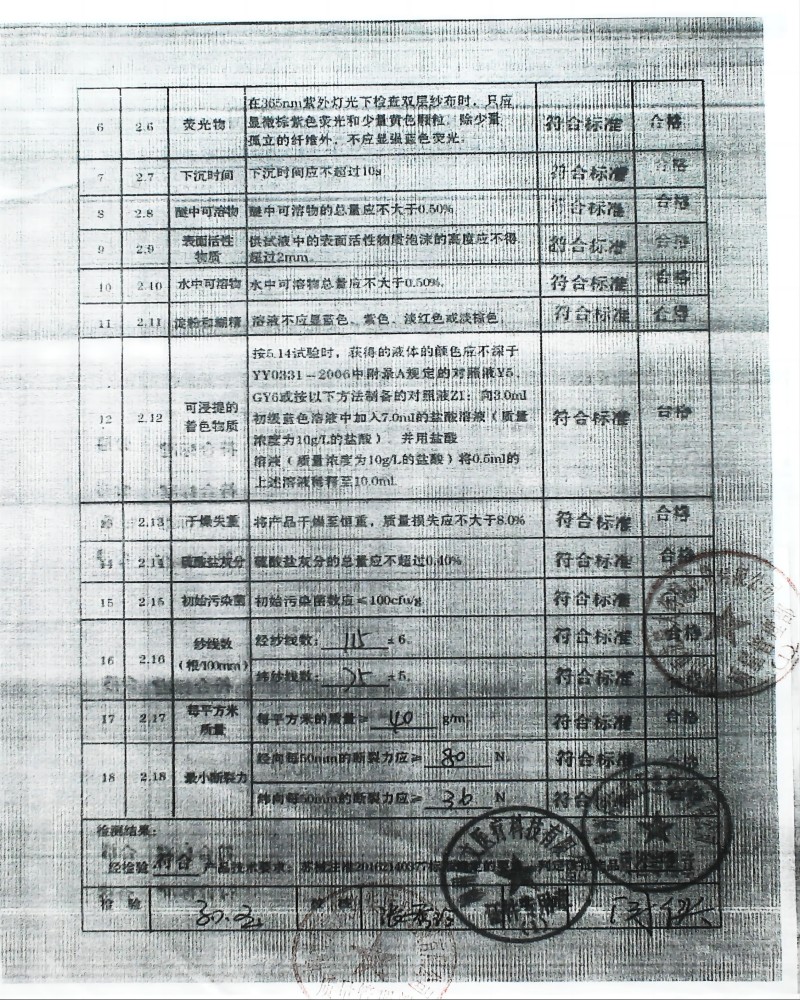 在365nm紫外灯光下检查双层纱布时，只应
6 2.6 荧光物 显微棕紫色荧光和少量黄色颗粒，除少量 符合标准 合格
孤立的纤维外，不应显强蓝色荧光。
7 2.7 下沉时间 下沉时间应不超过10s 符合标准 合格
8 2.8 醚中可溶物 醚中可溶物的总量应不大于0.50% 符合标准 合格
9 2.9 表面活性 供试液中的表面活性物质泡沫的高度应不得 符合标准 合格
物质 超过2mm。
10 2.10 水中可溶物 水中可溶物总量应不大于0.50%。 符合标准 合格
11 2.11 淀粉和糊精 溶液不应显蓝色、紫色、淡红色或淡棕色。 符合标准 合格
按5.14试验时，获得的液体的颜色应不深于
YY0331－2006中附录A规定的对照液Y5、
GY6或按以下方法制备的对照液Z1：向3.0ml
12 2.12 可浸提的 初级蓝色溶液中加入7.0ml的盐酸溶液（质量 符合标准 合格
着色物质 浓度为10g/L的盐酸） 并用盐酸
溶液（质量浓度为10g/L的盐酸）将0.5ml的
上述溶液稀释至10.0ml
2.13 干燥失重 将产品干燥至恒重，质量损失应不大于8.0% 符合标准 合格
14 2.14 硫酸盐灰分 硫酸盐灰分的总量应不超过0.40% 符合标准 合格
15 2.15 初始污染菌 初始污染菌数应≤100cfu/g 符合标准
16 2.16 纱线数 经纱线数： 115 ±6。 符合标准 合格
（根/100mm） 纬纱线数： 75 ±5。 符合标准 合格
17 2.17 每平方米 每平方米的质量≥ 40 g/m² 符合标准 合格
质量
18 2.18 最小断裂力 经向每50mm的断裂力应≥ 80 N 符合标准
纬向每50mm的断裂力应≥ 36 N 符合标准
检测结果：
经检验 符合 产品技术要求：苏械注准20162140377
检 验